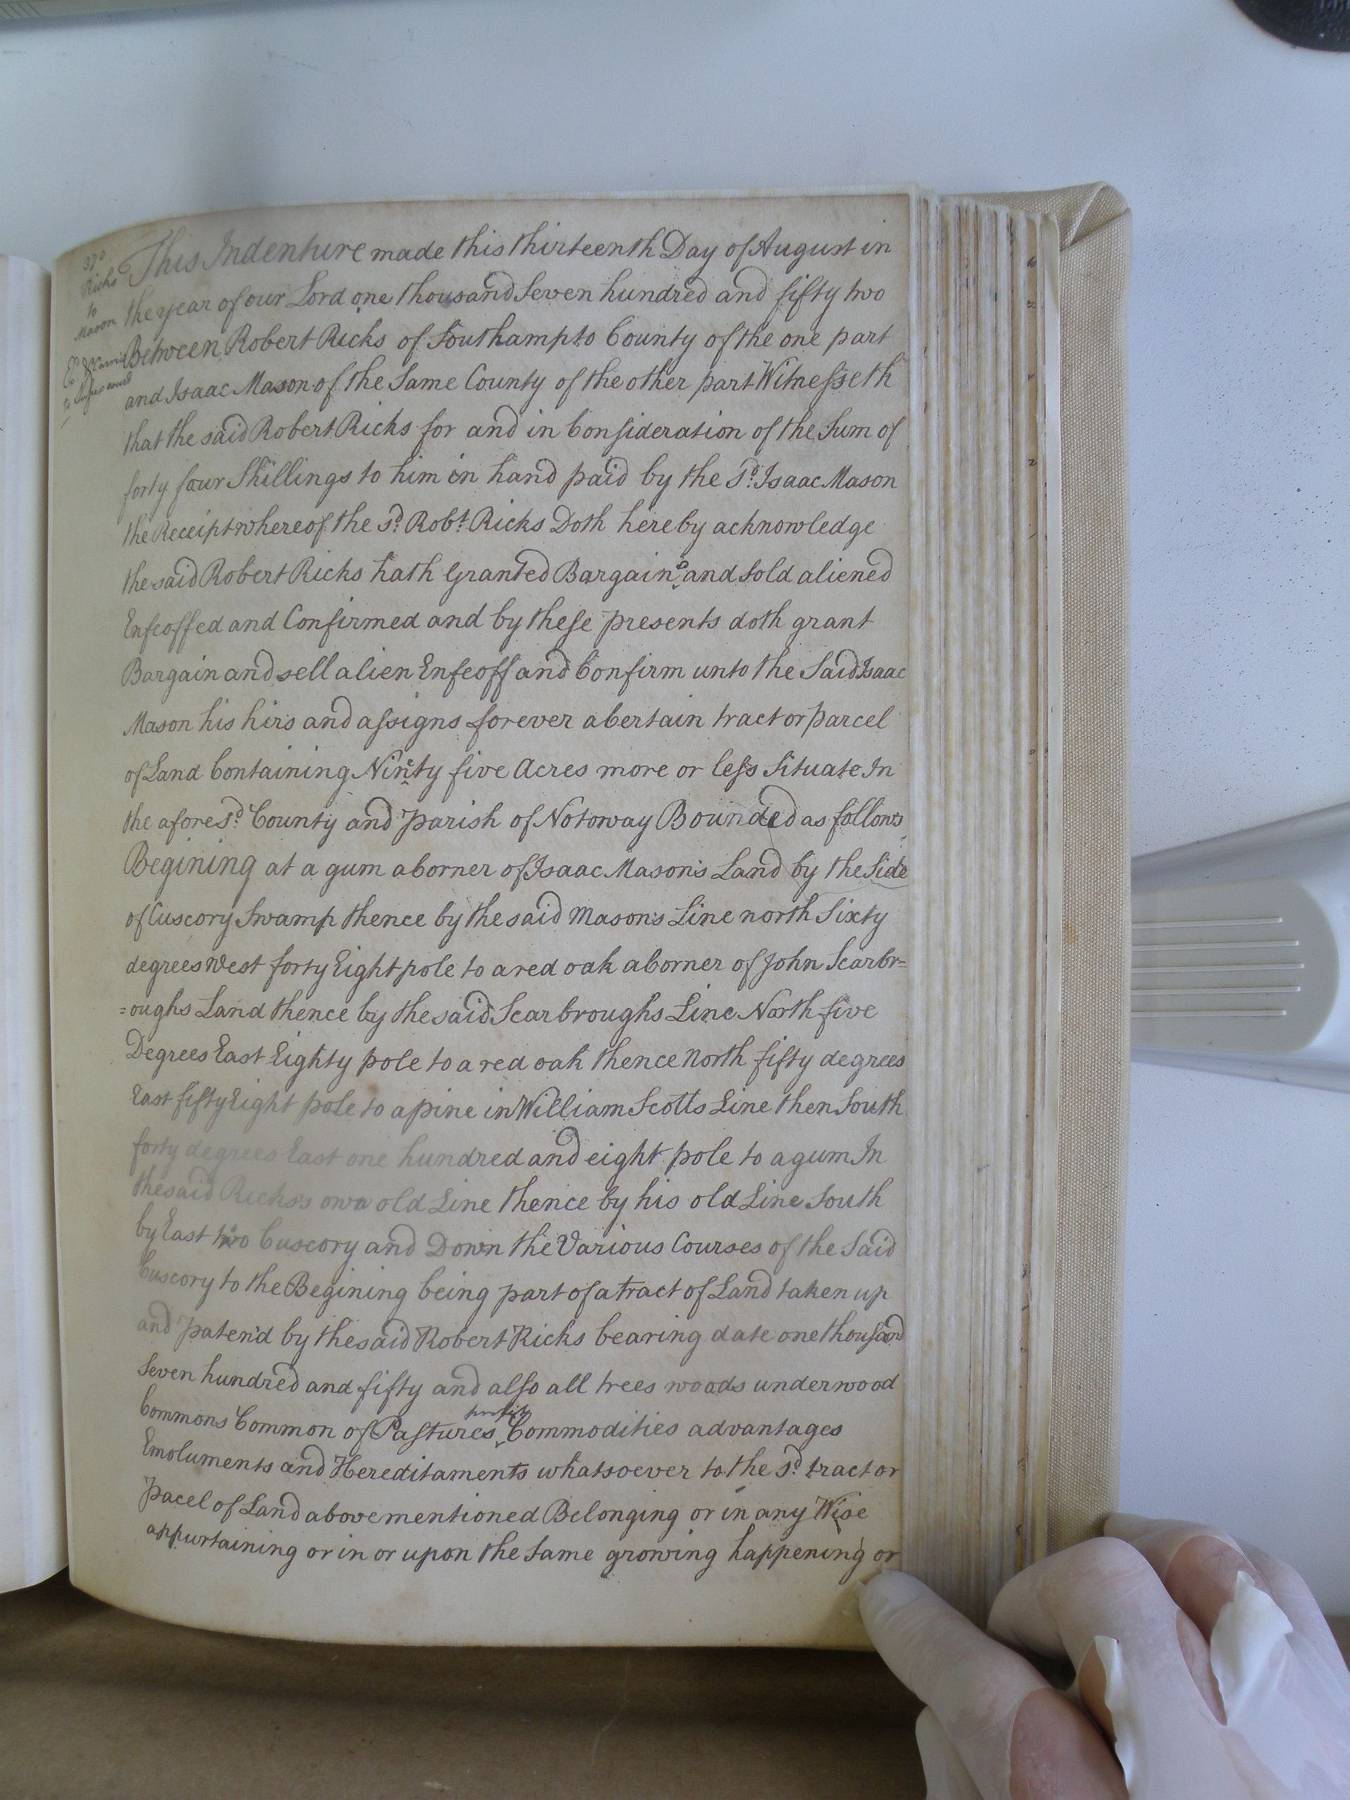 370
Ricks
to
Mason
This Indenture made this thirteenth Day of August in
the year of our Lord one thousand Seven hundred and fifty two
Between Robert Ricks of Southampto County of the one part
and Isaac Mason of the Same County of the other part Witnesseth
that the said Robert Ricks for and in Consideration of the Sum of
forty four Shillings to him in hand paid by the Sd. Isaac Mason
the Receipt whereof the sd. Robt. Ricks Doth hereby acknowledge
the said Robert Ricks hath Granted Bargaind and Sold aliened
Enfeoffed and Confirmed and by these presents doth grant
Bargain and sell alien Enfeoff and Confirm unto the Said Isaac
Mason his hirs and assigns forever a Certain tract or parcel
of Land Containing Ninty five Acres more or less Situate In
the afore Sd. County and Parish of Notoway Bounded as follows
Begining at a gum a Corner of Isaac Mason's Land by the Side
of Cuscory Swamp thence by the said Mason's Line north Sixty
degrees West forty Eight pole to a red oak a Corner of John Scarbr=
=oughs Land thence by the said Scarbroughs Line North five
Degrees East Eighty pole to a red oak thence North fifty degrees
East fifty Eight pole to a pine in William Scotts Line then South
forty degrees East one hundred and eight pole to a gum In
the said Ricks's own old Line thence by his old Line South
by East two Cuscory and Down the Various Courses of the Said
Cuscory to the Begining being part of a tract of Land taken up
and Paten'd by the said Robert Ricks bearing date one thousand
Seven hundred and fifty and also all trees woods underwood
Commons Common of Pastures profits Commodities advantages
Emoluments and Hereditaments whatsoever to the Sd. tract or
Pacel of Land above mentioned Belonging or in any Wise
appurtaining or in or upon the Same growing happening or